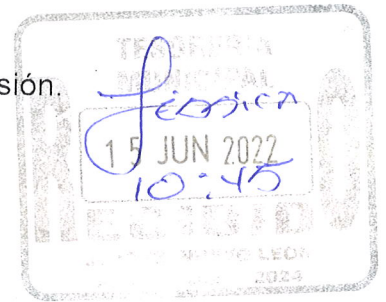 sión.
TESORERIA
MUNICIPAL
Jéssica
15 JUN 2022
10:45
RECIBIDO
NUEVO LEÓN
2024